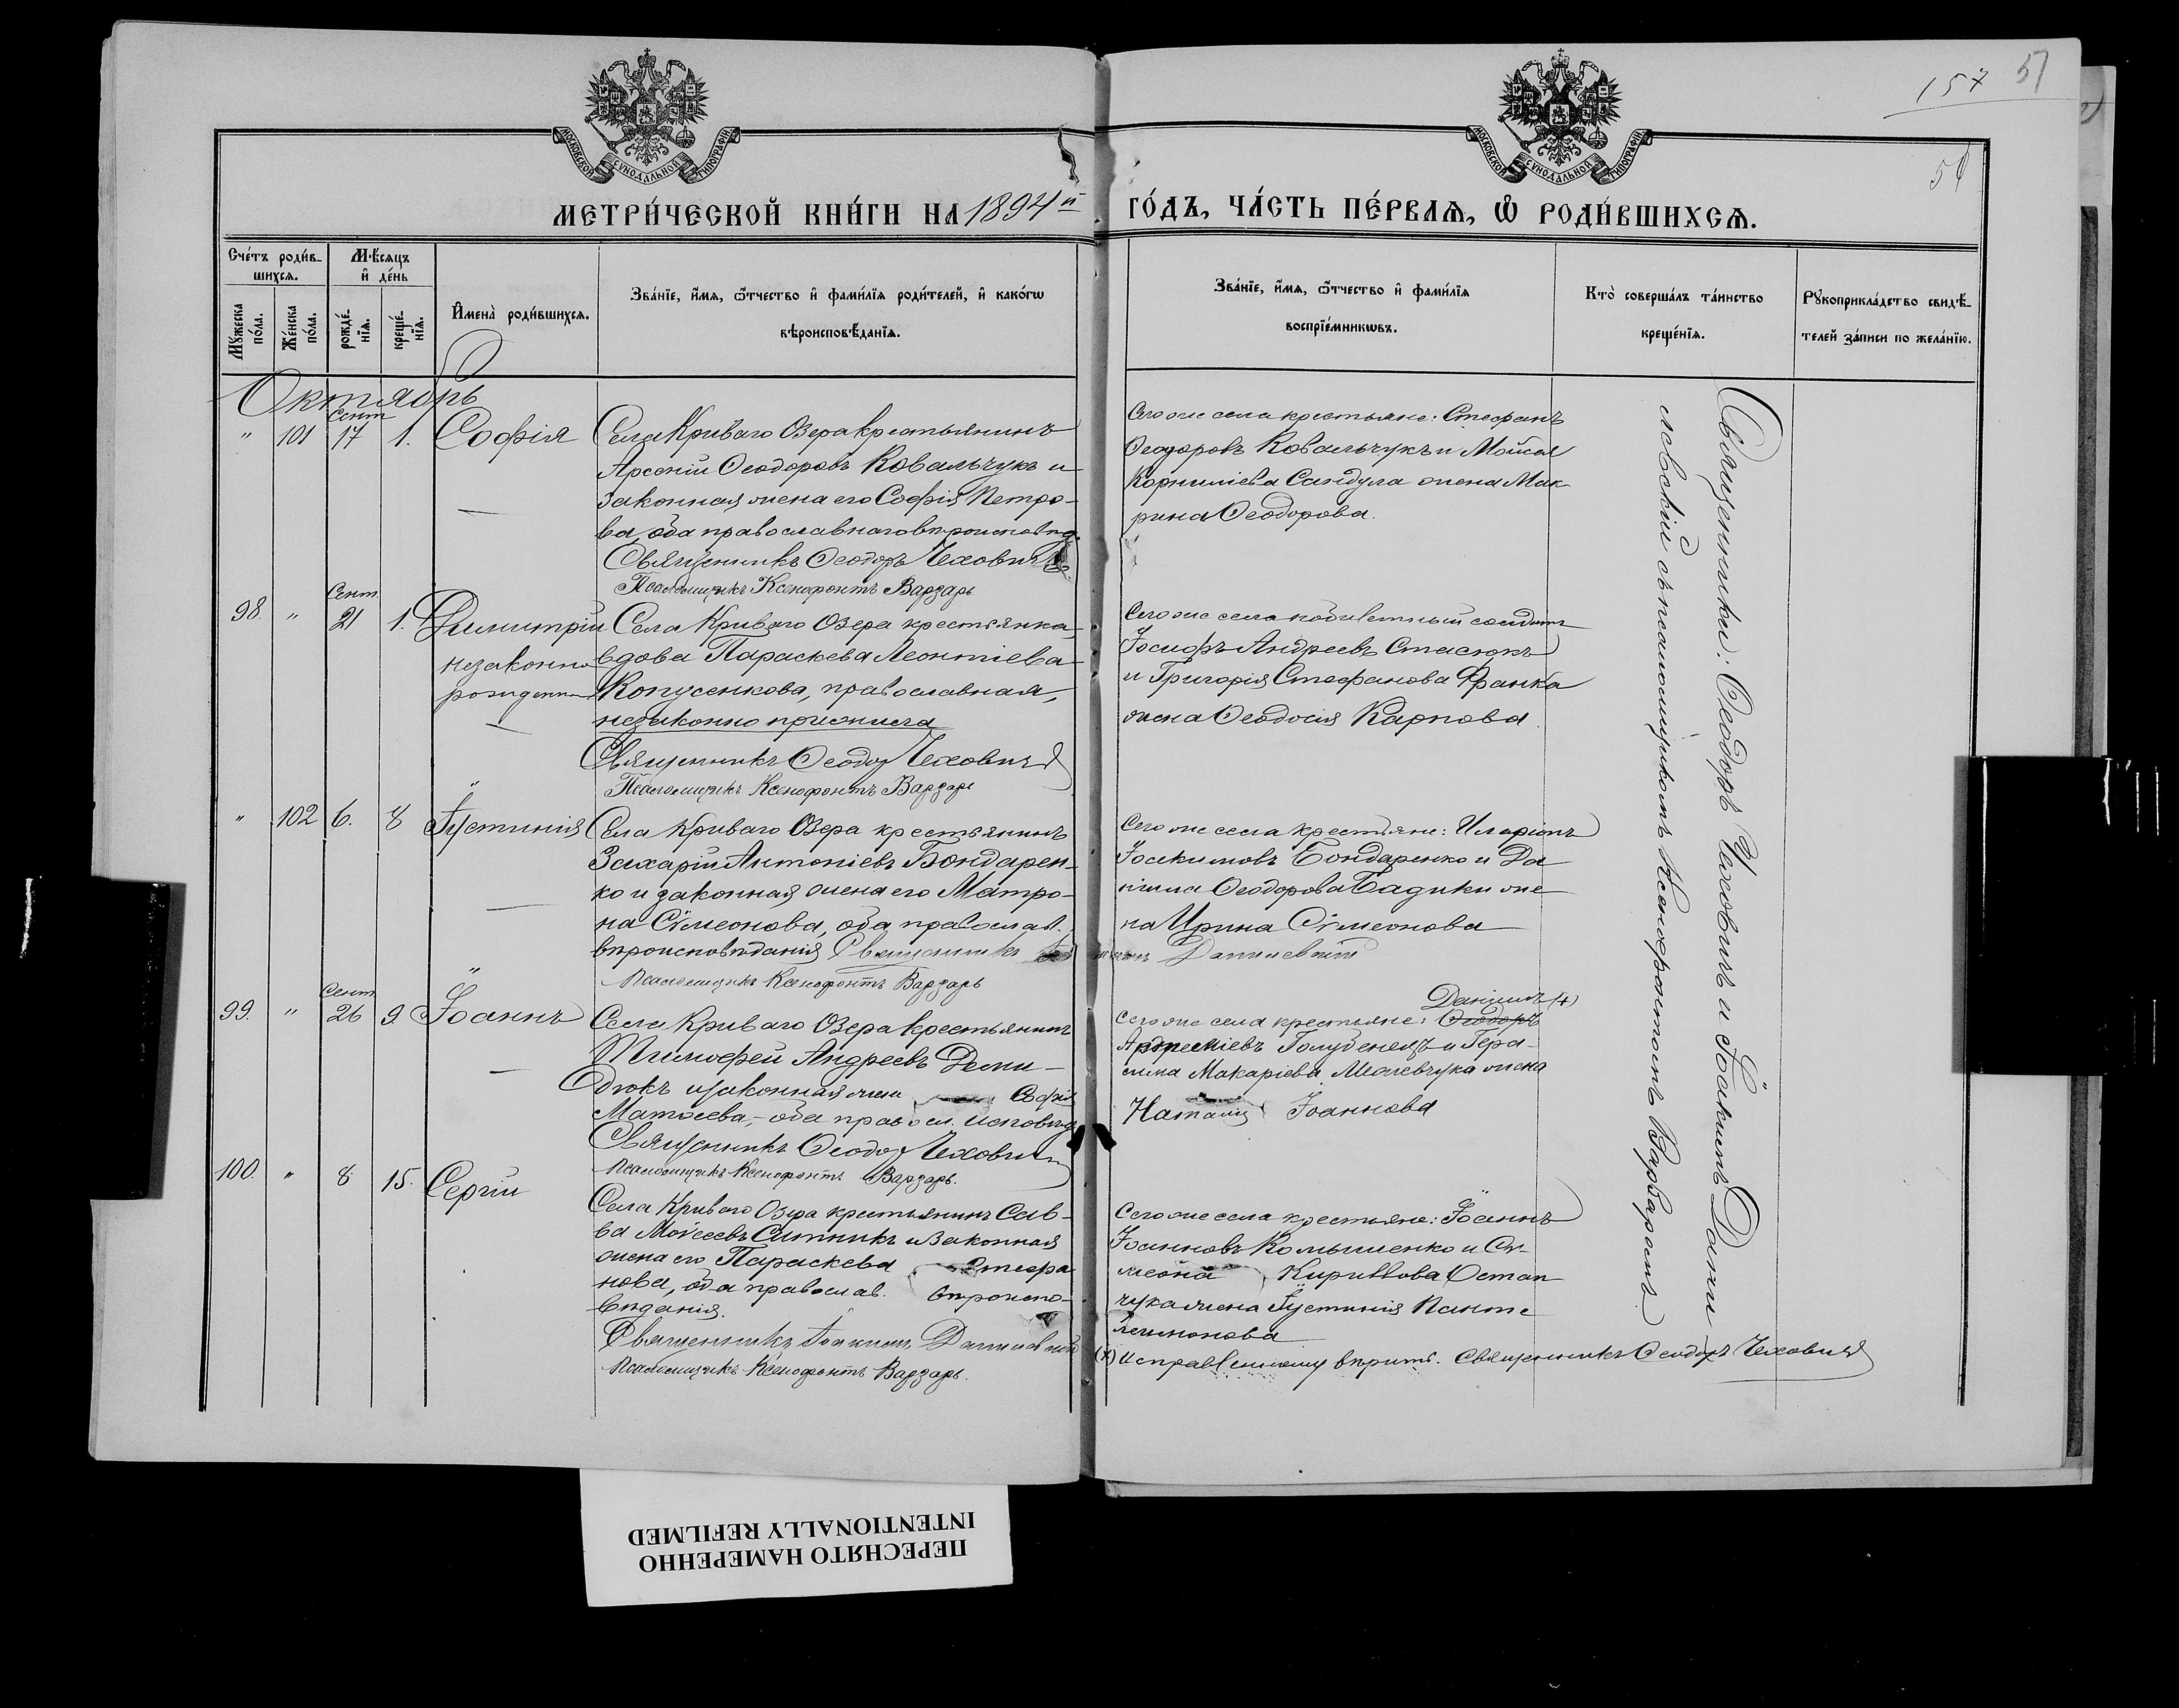 157 51
51
МОСКОВСКОЙ СУНОДАЛЬНОЙ ТИПОГРАФІИ
МОСКОВСКОЙ СУНОДАЛЬНОЙ ТИПОГРАФІИ
МЕТРИ́ЧЕСКОЙ КНИ́ГИ НА 1894й ГО́ДЪ, ЧА́СТЬ ПЕ́РВАѦ, Ѡ҆ РОДИ́ВШИХСѦ.
Сче́тъ роди́в-
шихсѧ.
Мѣ́сѧцъ
и҆ де́нь
Мꙋ́жеска
по́ла.
Же́нска
по́ла.
рожде́-
нїѧ.
креще́-
нїѧ.
И҆мена̀ роди́вшихсѧ.
Зва́нїе, и҆́мѧ, ѻ҆́тчество и҆ фами́лїѧ роди́телей, и҆ како́гѡ
вѣроисповѣ́данїѧ.
Зва́нїе, и҆́мѧ, ѻ҆́тчество и҆ фами́лїѧ
воспрїе́мникѡвъ.
Кто̀ соверша́лъ та́инство
креще́нїѧ.
Рꙋкоприкла́дство свидѣ́-
телей за́писи по жела́нїю.
Октябрь
" 101 Сент 17 1. Софія
Села Криваго Озера крестьянинъ
Арсеній Ѳеодоровъ Ковальчукъ и
законная жена его Софія Петро-
ва, оба православнаго вѣроисповѣд.
Священникъ Ѳеодоръ Чеховичъ
Псаломщикъ Ксенофонтъ Варзарь
Сего же села крестьяне: Стефанъ
Ѳеодоровъ Ковальчукъ и Мойсея
Корниліева Сандула жена Мак
рина Ѳеодорова.
98. " Сент. 21 1. Димитрій
незаконно
рожденный
Села Криваго Озера крестьянка,
вдова Параскева Леонтіева
Копусенкова, православная,
незаконно прижила
Священникъ Ѳеодоръ Чеховичъ
Псаломщикъ Ксенофонтъ Варзарь
Сего же села солдатъ
Іосифъ Андреевъ Стасюкъ
и Григорія Стефанова Франка
жена Ѳеодосія Карпова
" 102 6. 8 Іустинія
Села Криваго Озера крестьянинъ
Захарій Антоніевъ Бондарен-
ко и законная жена его Матро-
на Сѵмеонова, оба православ.
вѣроисповѣданія Священникъ Данилевскій
Псаломщикъ Ксенофонтъ Варзарь
Сего же села крестьяне: Иларіонъ
Іоакимовъ Бондаренко и Да
ніила Ѳеодорова Бадики же
на Ирина Сѵмеонова
99. " Сент 26 9 Іоаннъ
Села Криваго Озера крестьянинъ
Тимофей Андреевъ Деми-
дюкъ и законная жена Софія
Матѳеева,- оба правосл. исповѣд
Священникъ Ѳеодоръ Чеховичъ
Псаломщикъ Ксенофонтъ Варзарь.
Даніилъ (+)
Сего же села крестьяне: Ѳеодоръ
Голубенецъ и Гера-
сима Макаріева Малевчука жена
Наталія Іоаннова
100. " 8 15. Сергій
Села Криваго Озера крестьянинъ Сав-
ва Мойсеевъ Ситникъ и законная
жена его Параскева Стефа
нова, оба православ. вѣроиспо-
вѣданія.
Священникъ Іоакимъ Данилевскій
Псаломщикъ Ксенофонтъ Варзарь.
Сего же села крестьяне: Іоаннъ
Іоанновъ Комышенко и Сѵ-
меона Кириллова Остап
чука жена Іустинія Панте
леимонова
(+) Исправленному вѣрить. Священникъ Ѳеодоръ Чеховичъ
Священники: Ѳеодоръ Чеховичъ и Іоакимъ Дани
левскій съ псаломщикомъ Ксенофонтомъ Варзаремъ.
ПЕРЕСНЯТО НАМЕРЕННО
INTENTIONALLY REFILMED